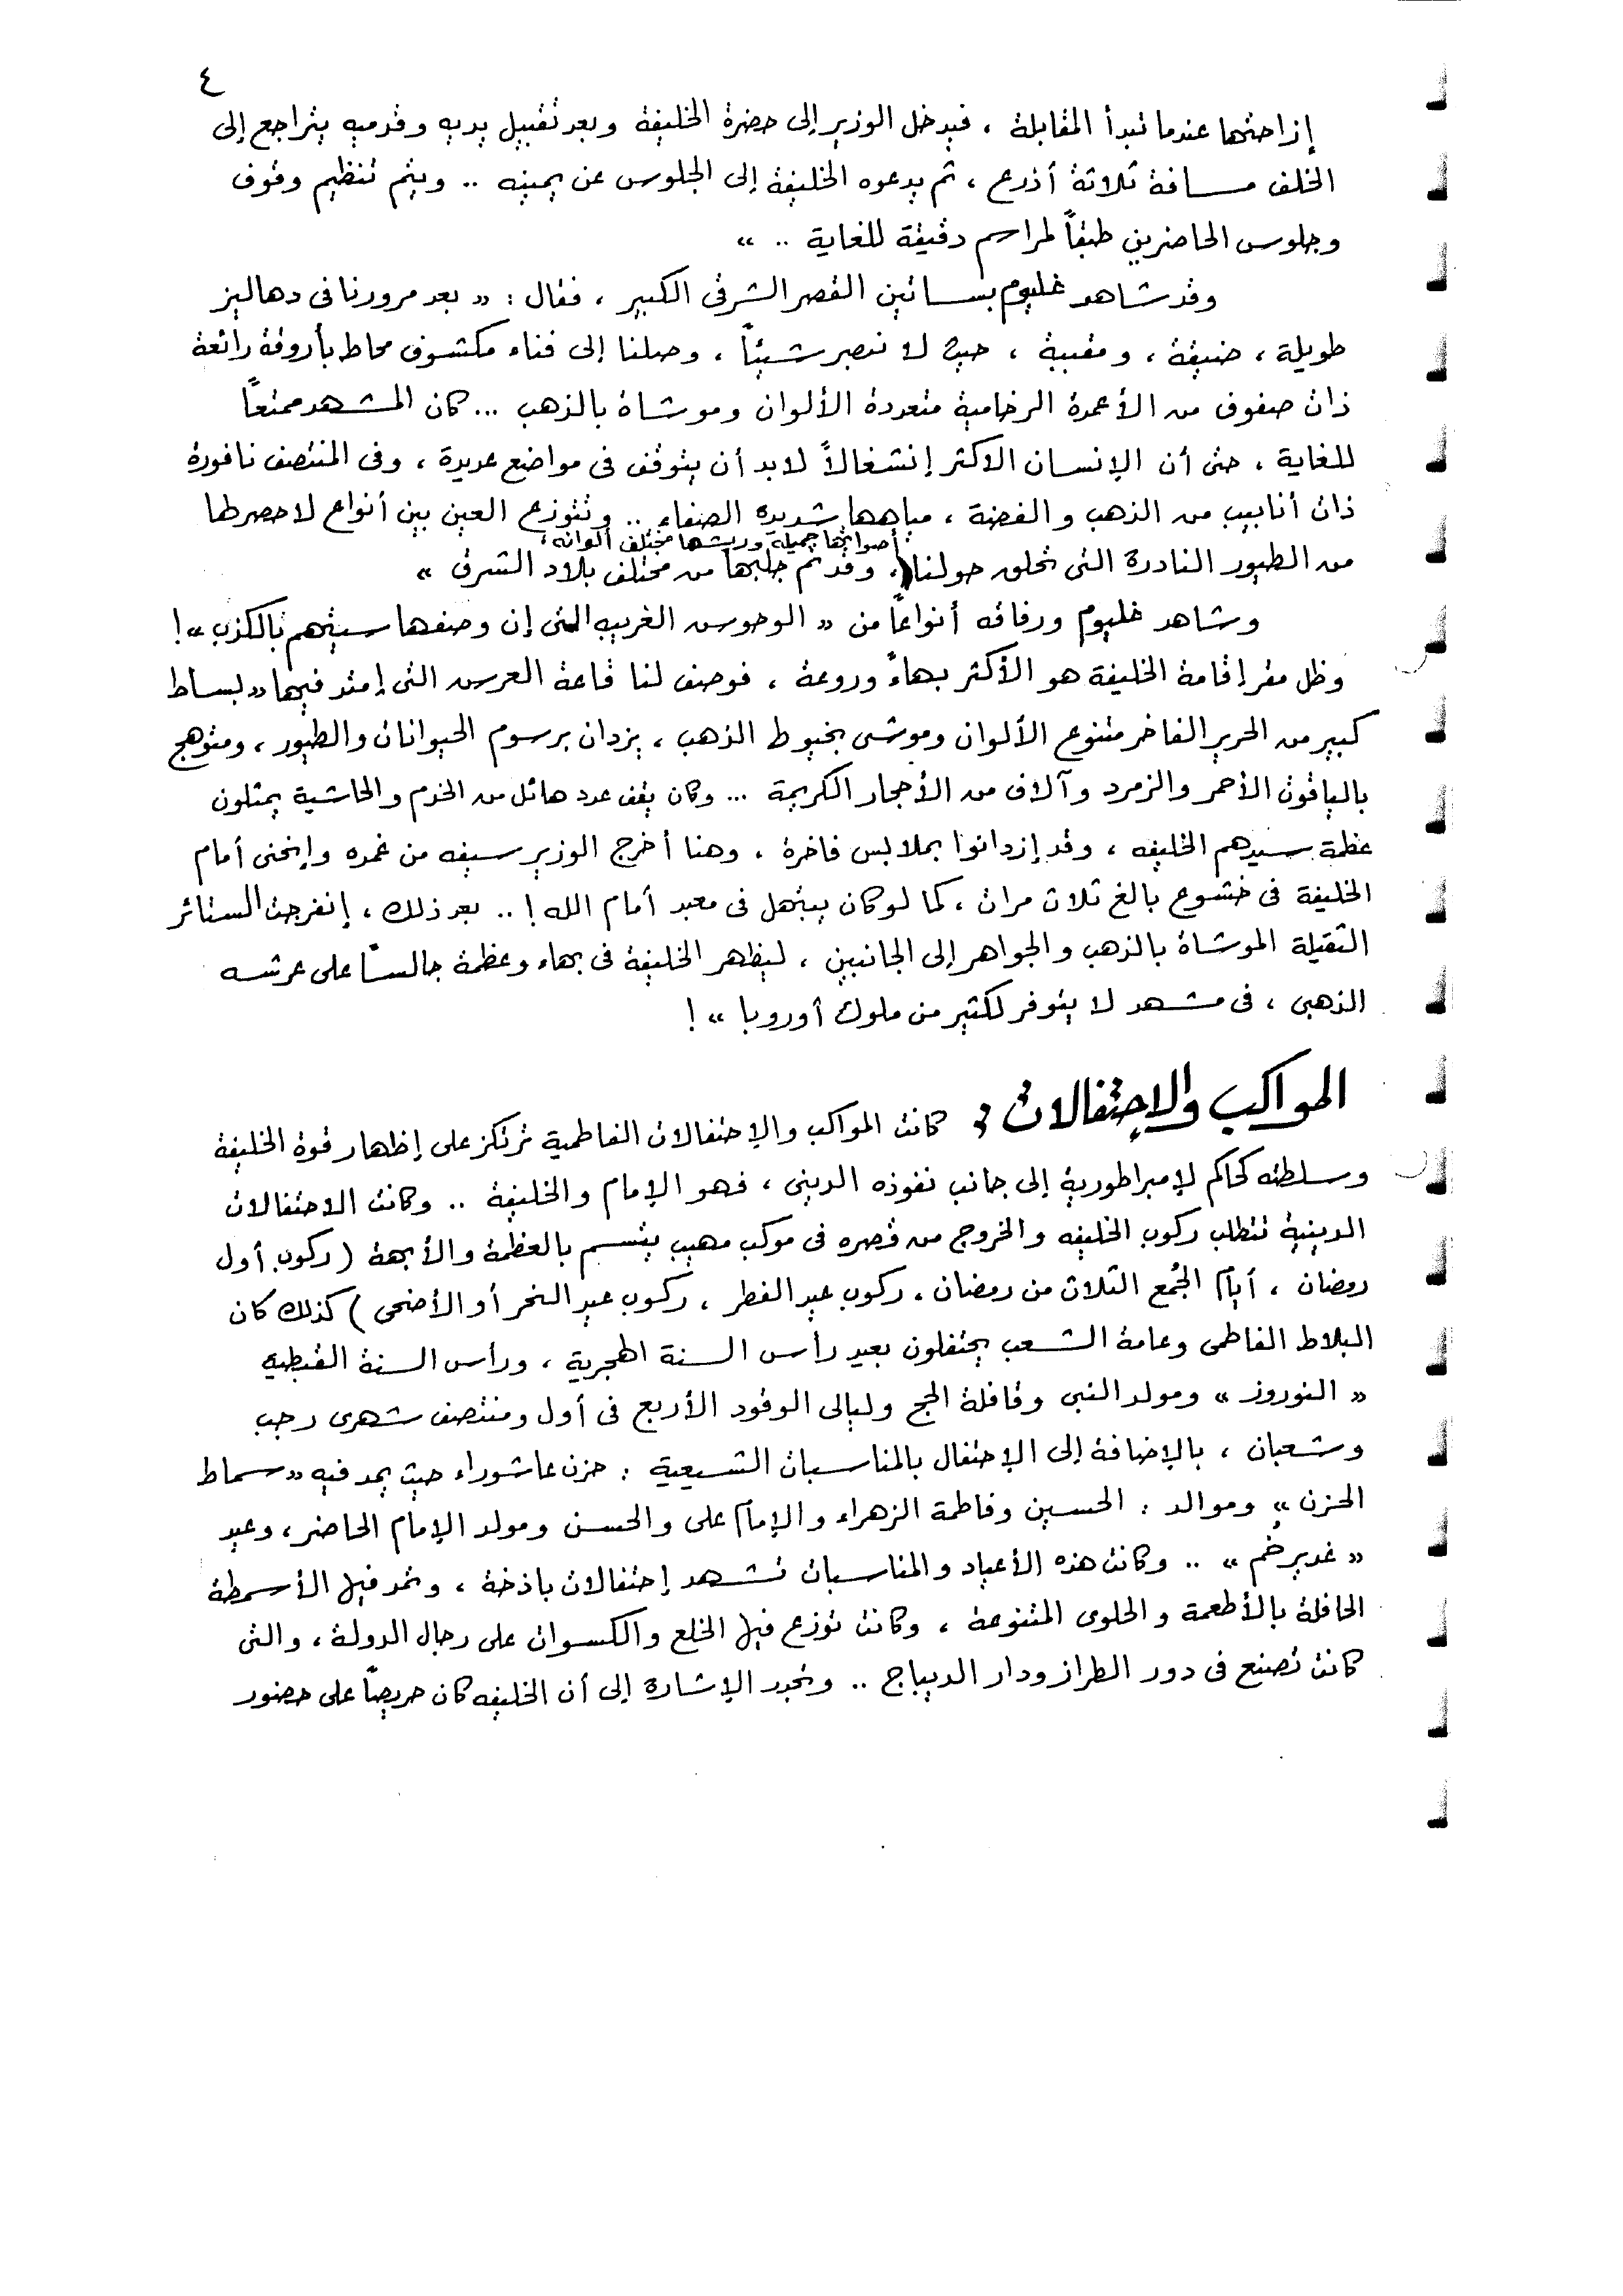 ٤
إزاحتها عندما تبدأ المقابلة ، فيدخل الوزير إلى حضرة الخليفة وبعد تقبيل يديه وقدميه يتراجع إلى
الخلف مسافة ثلاثة أذرع ، ثم يدعوه الخليفة إلى الجلوس عن يمينه .. ويتم تنظيم وقوف
وجلوس الحاضرين طبقاً لمراسم دقيقة للغاية .. »
وقد شاهد غليوم بساتين القصر الشرقى الكبير ، فقال : « بعد مرورنا فى دهاليز
طويلة ، ضيقة ، ومقببة ، حيث لا نبصر شيئاً ، وصلنا إلى فناء مكشوف محاط بأروقة رائعة
ذات صفوف من الأعمدة الرخامية متعددة الألوان وموشاة بالذهب ... كان المشهد ممتعاً
للغاية ، حتى أن الإنسان الأكثر إنشغالاً لابد أن يتوقف فى مواضع عديدة ، وفى المنتصف نافورة
ذات أنابيب من الذهب والفضة ، مياهها شديدة الصفاء .. وتتوزع العين بين أنواع لا حصر لها
أصواتها جميلة وريشها مختلف ألوانه ،
من الطيور النادرة التى تحلق حولنا ، وقد تم جلبها من مختلف بلاد الشرق »
وشاهد غليوم ورفاقه أنواعاً من « الوحوش الغريبه التى إن وصفها سيتهم بالكذب » !
وظل مقر إقامة الخليفة هو الأكثر بهاءً وروعة ، فوصف لنا قاعة العرش التى إمتد فيها « بساط
كبير من الحرير الفاخر متنوع الألوان وموشى بخيوط الذهب ، يزدان برسوم الحيوانات والطيور ، ومتوهج
بالياقوت الأحمر والزمرد وآلاف من الأحجار الكريمة ... وكان يقف عدد هائل من الخدم والحاشية يمثلون
عظمة سيدهم الخليفه ، وقد إزدانوا بملابس فاخرة ، وهنا أخرج الوزير سيفه من غمده وإنحنى أمام
الخليفة فى خشوع بالغ ثلاث مرات ، كما لو كان يبتهل فى معبد أمام الله ! .. بعد ذلك ، إنفرجت الستائر
الثقيلة الموشاة بالذهب والجواهر إلى الجانبين ، ليظهر الخليفة فى بهاء وعظمة جالساً على عرشه
الذهبى ، فى مشهد لا يتوفر لكثير من ملوك أوروبا » !
المواكب والإحتفالات : كانت المواكب والإحتفالات الفاطمية ترتكز على إظهار قوة الخليفة
وسلطته كحاكم لإمبراطورية إلى جانب نفوذه الدينى ، فهو الإمام والخليفة .. وكانت الاحتفالات
الدينية تتطلب ركوب الخليفه والخروج من قصره فى موكب مهيب يتسم بالعظمة والأبهة ( ركوب أول
رمضان ، أيام الجُمع الثلاث من رمضان ، ركوب عيد الفطر ، ركوب عيد النحر أو الأضحى ) كذلك كان
البلاط الفاطمى وعامة الشعب يحتفلون بعيد رأس السنة الهجرية ، ورأس السنة القبطيه
« النوروز » ومولد النبى وقافلة الحج وليالى الوقود الأربع فى أول ومنتصف شهرى رجب
وشعبان ، بالإضافة إلى الإحتفال بالمناسبات الشيعية : حزن عاشوراء حيث يمد فيه « سماط
الحزن » وموالد : الحسين وفاطمة الزهراء والإمام على والحسن ومولد الإمام الحاضر ، وعيد
« غدير خُم » .. وكانت هذه الأعياد والمناسبات تشهد إحتفالات باذخة ، وتمد فيها الأسمطة
الحافلة بالأطعمة والحلوى المتنوعة ، وكانت توزع فيها الخلع والكسوات على رجال الدولة ، والتى
كانت تصنع فى دور الطراز ودار الديباج .. وتجدر الإشارة إلى أن الخليفه كان حريصاً على حضور